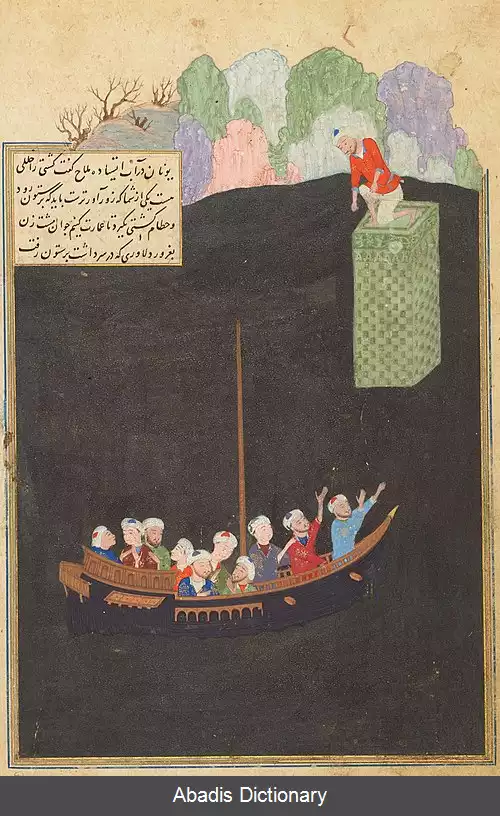 یونان در آب ایستاده ملاح گفت کشتی را خللی
هست یکی از شما که زور آورترست باید که برستون رود
و خطام کشتی بگیرد تا عمارت کنیم جوان مشت زن
بغرور دلاوری که در سر داشت برستون رفت
Abadis Dictionary